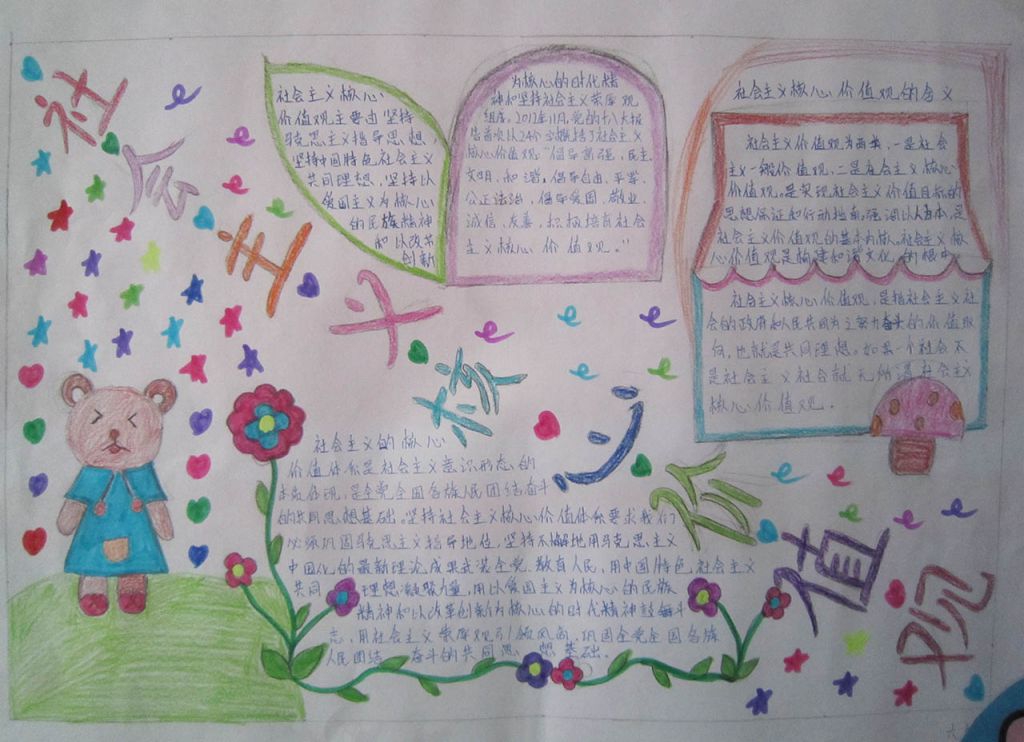 社会主义核心价值观
社会主义核心
价值观主要由坚持
马克思主义指导思想,
坚持中国特色社会主义
共同理想,坚持以
爱国主义为核心
的民族精神
和以改革
创新
为核心的时代精
神和坚持社会主义荣辱观
组成。2012年11月,党的十八大报
告首次以24个字概括了社会主义
核心价值观:“倡导富强、民主、
文明、和谐,倡导自由、平等、
公正法治,倡导爱国、敬业、
诚信、友善,积极培育社会
主义核心价值观。”
社会主义核心价值观的含义
社会主义价值观为两类,一是社会
主义一般价值观,二是社会主义核心
价值观。是实现社会主义价值目标的
思想保证和行动指南,强调以人为本,是
社会主义价值观的基本内核。社会主义核
心价值观是构建和谐文化的根本。
社会主义核心价值观,是指社会主义社
会的政府和人民共同为之努力奋头的价值取
向,也就是共同理想。如果一个社会不
是社会主义社会就无所谓社会主义
核心价值观。
社会主义的核心
价值体系是社会主义意识形态的
本质体现,是全党全国各族人民团结奋斗
的共同思想基础。坚持社会主义核心价值体系要求我们
必须巩固马克思主义指导地位,坚持不懈地用马克思主义
中国化的最新理论成果武装全党、教育人民,用中国特色社会主义
共同理想凝聚力量,用以爱国主义为核心的民族
精神和以改革创新为核心的时代精神鼓舞斗
志,用社会主义荣辱观引领风尚,巩固全党全国各族
人民团结奋斗的共同思想基础。